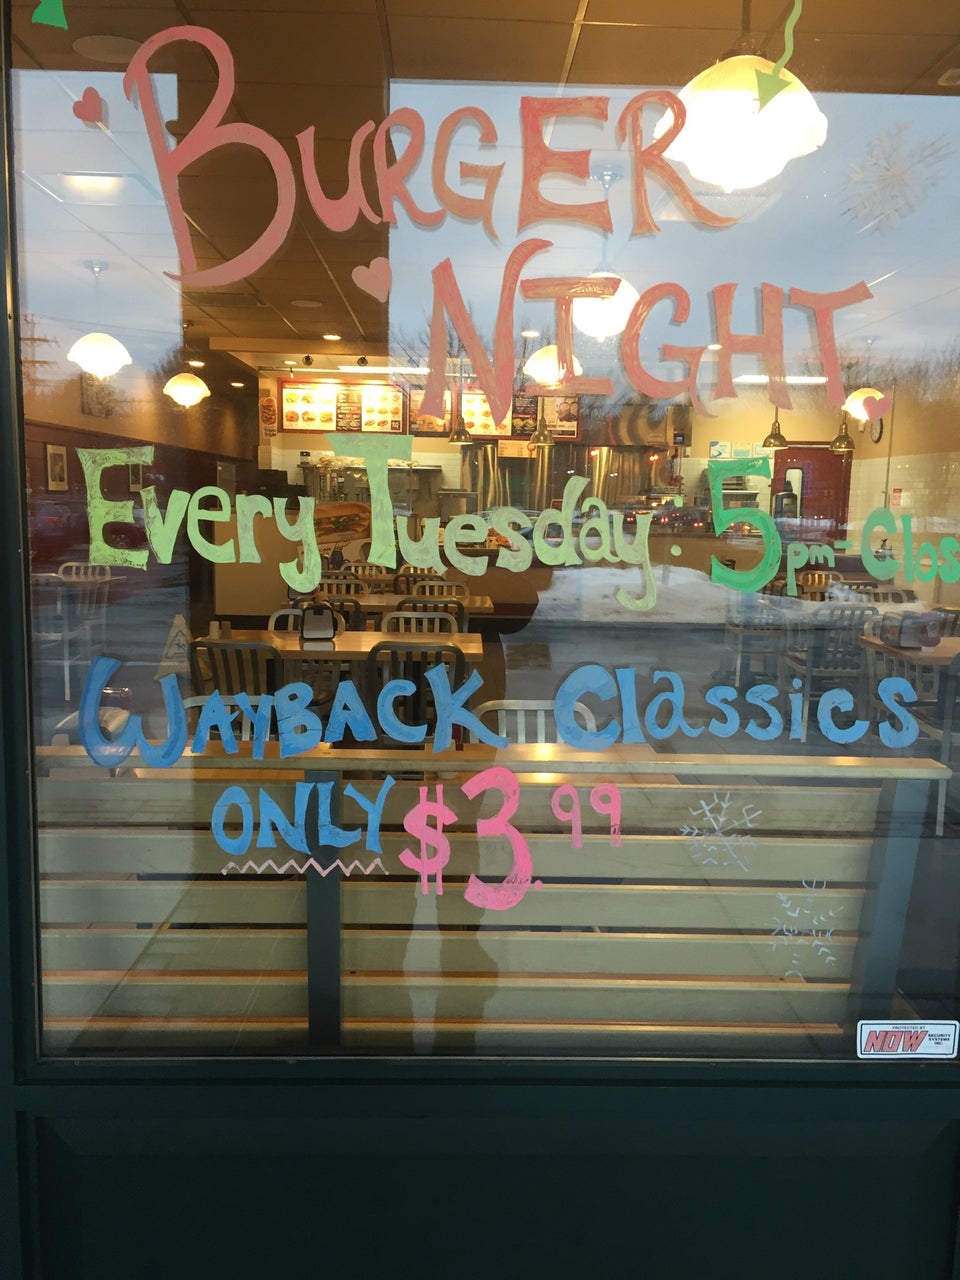 BURGER
NIGHT
Every Tuesday: 5pm-Clos
WAYBACK Classics
ONLY $3.99
PROTECTED BY
NOW SECURITY
SYSTEMS
INC.